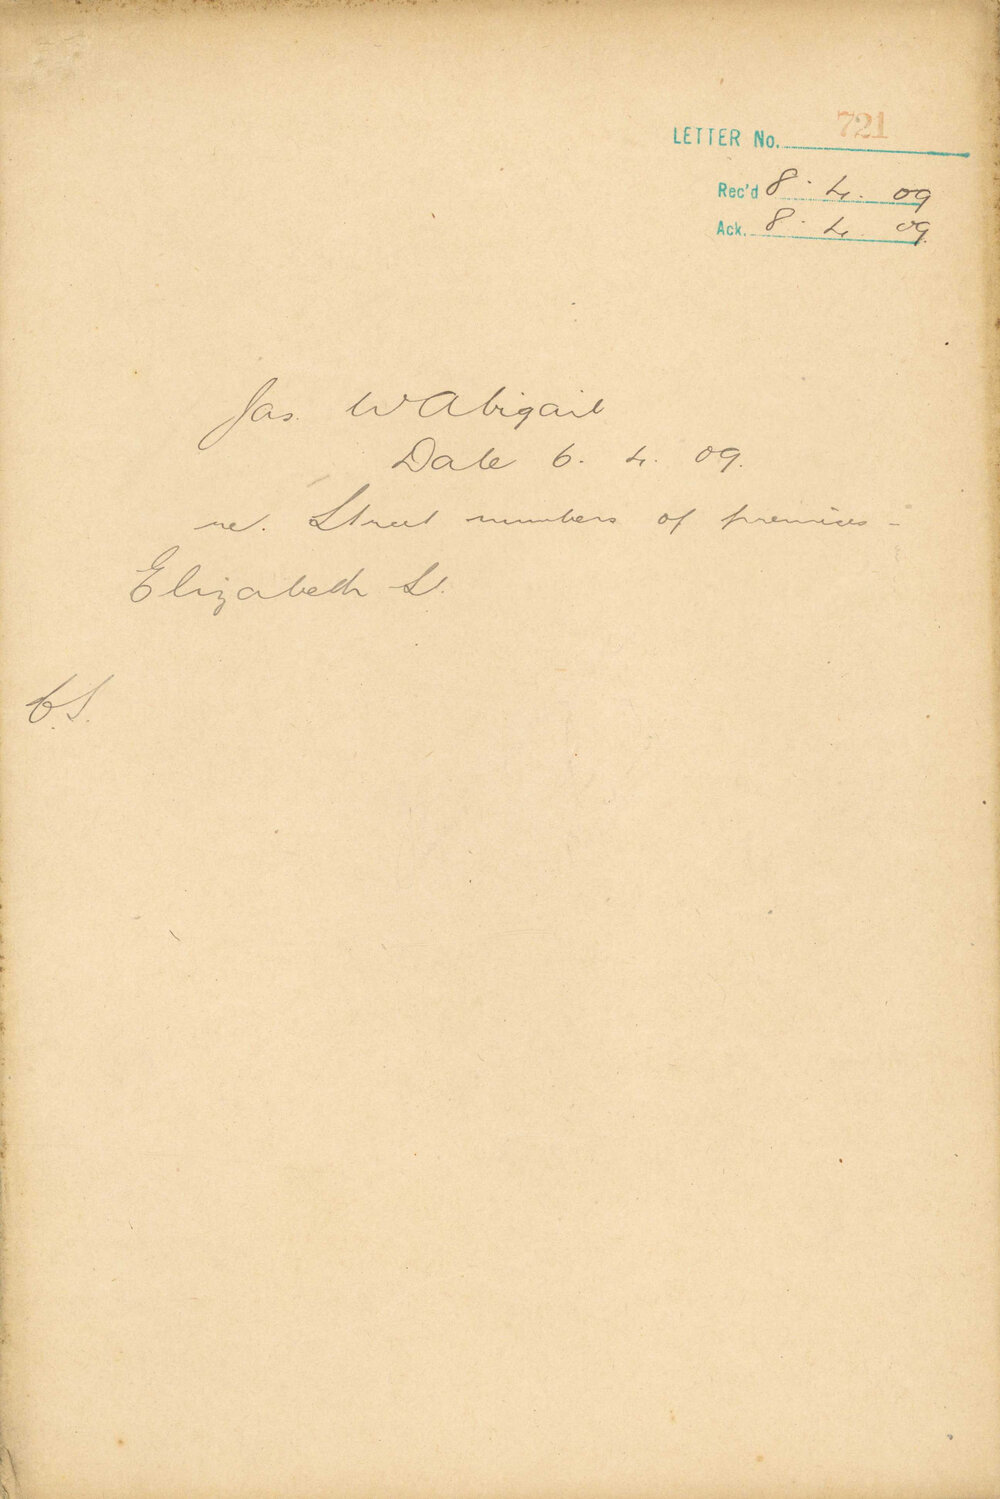 LETTER No. 721
Rec'd 8.4.09
Ack. 8.4.09.
Jas. W Abigail
Date 6. 4. 09.
re. Street numbers of premises -
Elizabeth St.
C.S.